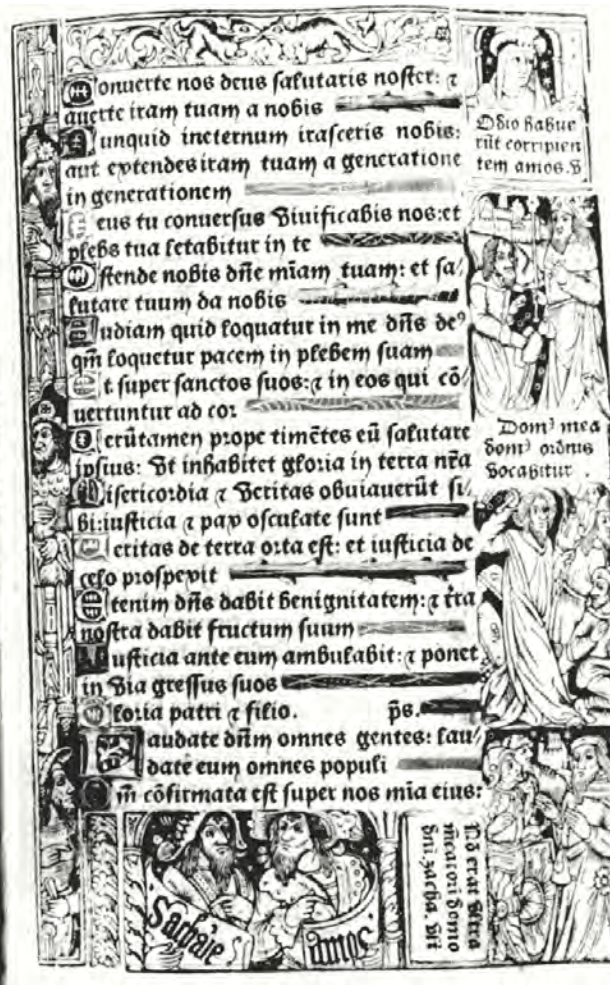 Conuerte nos deus salutaris noster: ⁊
auerte iram tuam a nobis
Nunquid ineternum irasceris nobis:
aut extendes iram tuam a generatione
in generationem
Deus tu conuersus viuificabis nos:et
plebs tua letabitur in te
Ostende nobis dñe miam̄ tuam: et sa/
lutare tuum da nobis
Audiam quid loquatur in me dñs deꝰ
qm̄ loquetur pacem in plebem suam
Et super sanctos suos:⁊ in eos qui cō/
uertuntur ad cor
Uerūtamen prope timētes eū salutare
ipsius: vt inhabitet gloria in terra nr̄a
Misericordia ⁊ veritas obuiauerūt si/
bi:iusticia ⁊ pax osculate sunt
Ueritas de terra orta est: et iusticia de
celo prospexit
Etenim dñs dabit benignitatem:⁊ tr̄ra
nostra dabit fructum suum
Iusticia ante eum ambulabit:⁊ ponet
in via gressus suos
Gloria patri ⁊ filio. p̄s.
Laudate dñm omnes gentes: lau/
date eum omnes populi
Qm̄ cōfirmata est super nos mīa eius:
Odio habue
rūt corripien
tem amos. v
Domꝰ mea
domꝰ orōnis
vocabitur .
domo
zacha. vii
amos